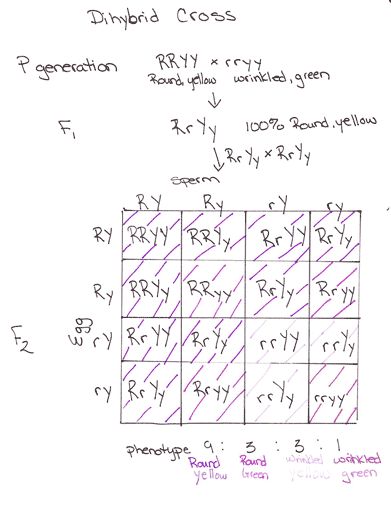 Dihybrid Cross
P generation RRYY × rryy
Round, yellow wrinkled, green
F1 RrYy 100% Round, yellow
RrYy × RrYy
sperm
RY Ry rY ry
RY RRYY RRYy RrYY RrYy
Ry RRYy RRyy RrYy Rryy
F2 egg
rY RrYY RrYy rrYY rrYy
ry RrYy Rryy rrYy rryy
phenotype 9 : 3 : 3 : 1
Round Round wrinkled wrinkled
yellow Green yellow green